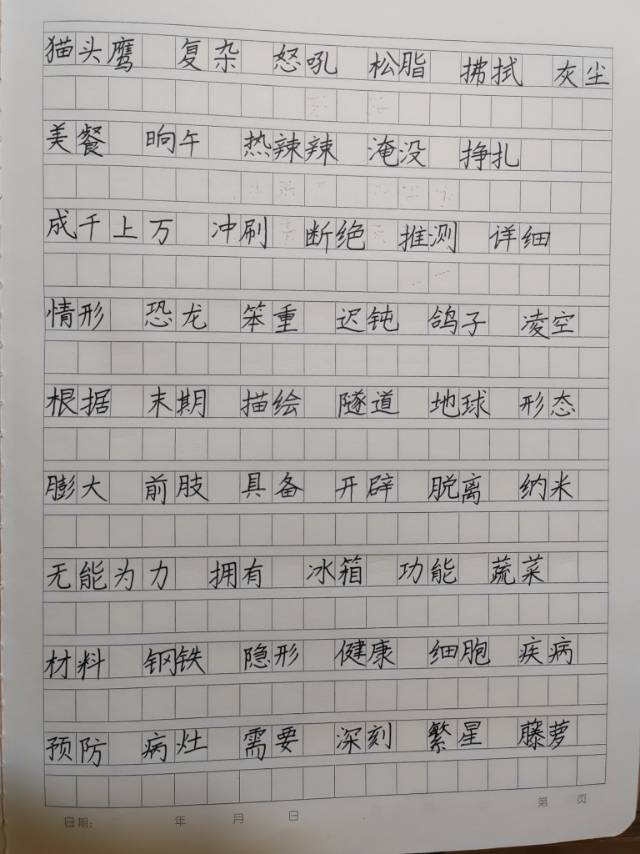 猫头鹰 复杂 怒吼 松脂 拂拭 灰尘
美餐 晌午 热辣辣 淹没 挣扎
成千上万 冲刷 断绝 推测 详细
情形 恐龙 笨重 迟钝 鸽子 凌空
根据 末期 描绘 隧道 地球 形态
膨大 前肢 具备 开辟 脱离 纳米
无能为力 拥有 冰箱 功能 蔬菜
材料 钢铁 隐形 健康 细胞 疾病
预防 病灶 需要 深刻 繁星 藤萝
日期: 年 月 日 第 页